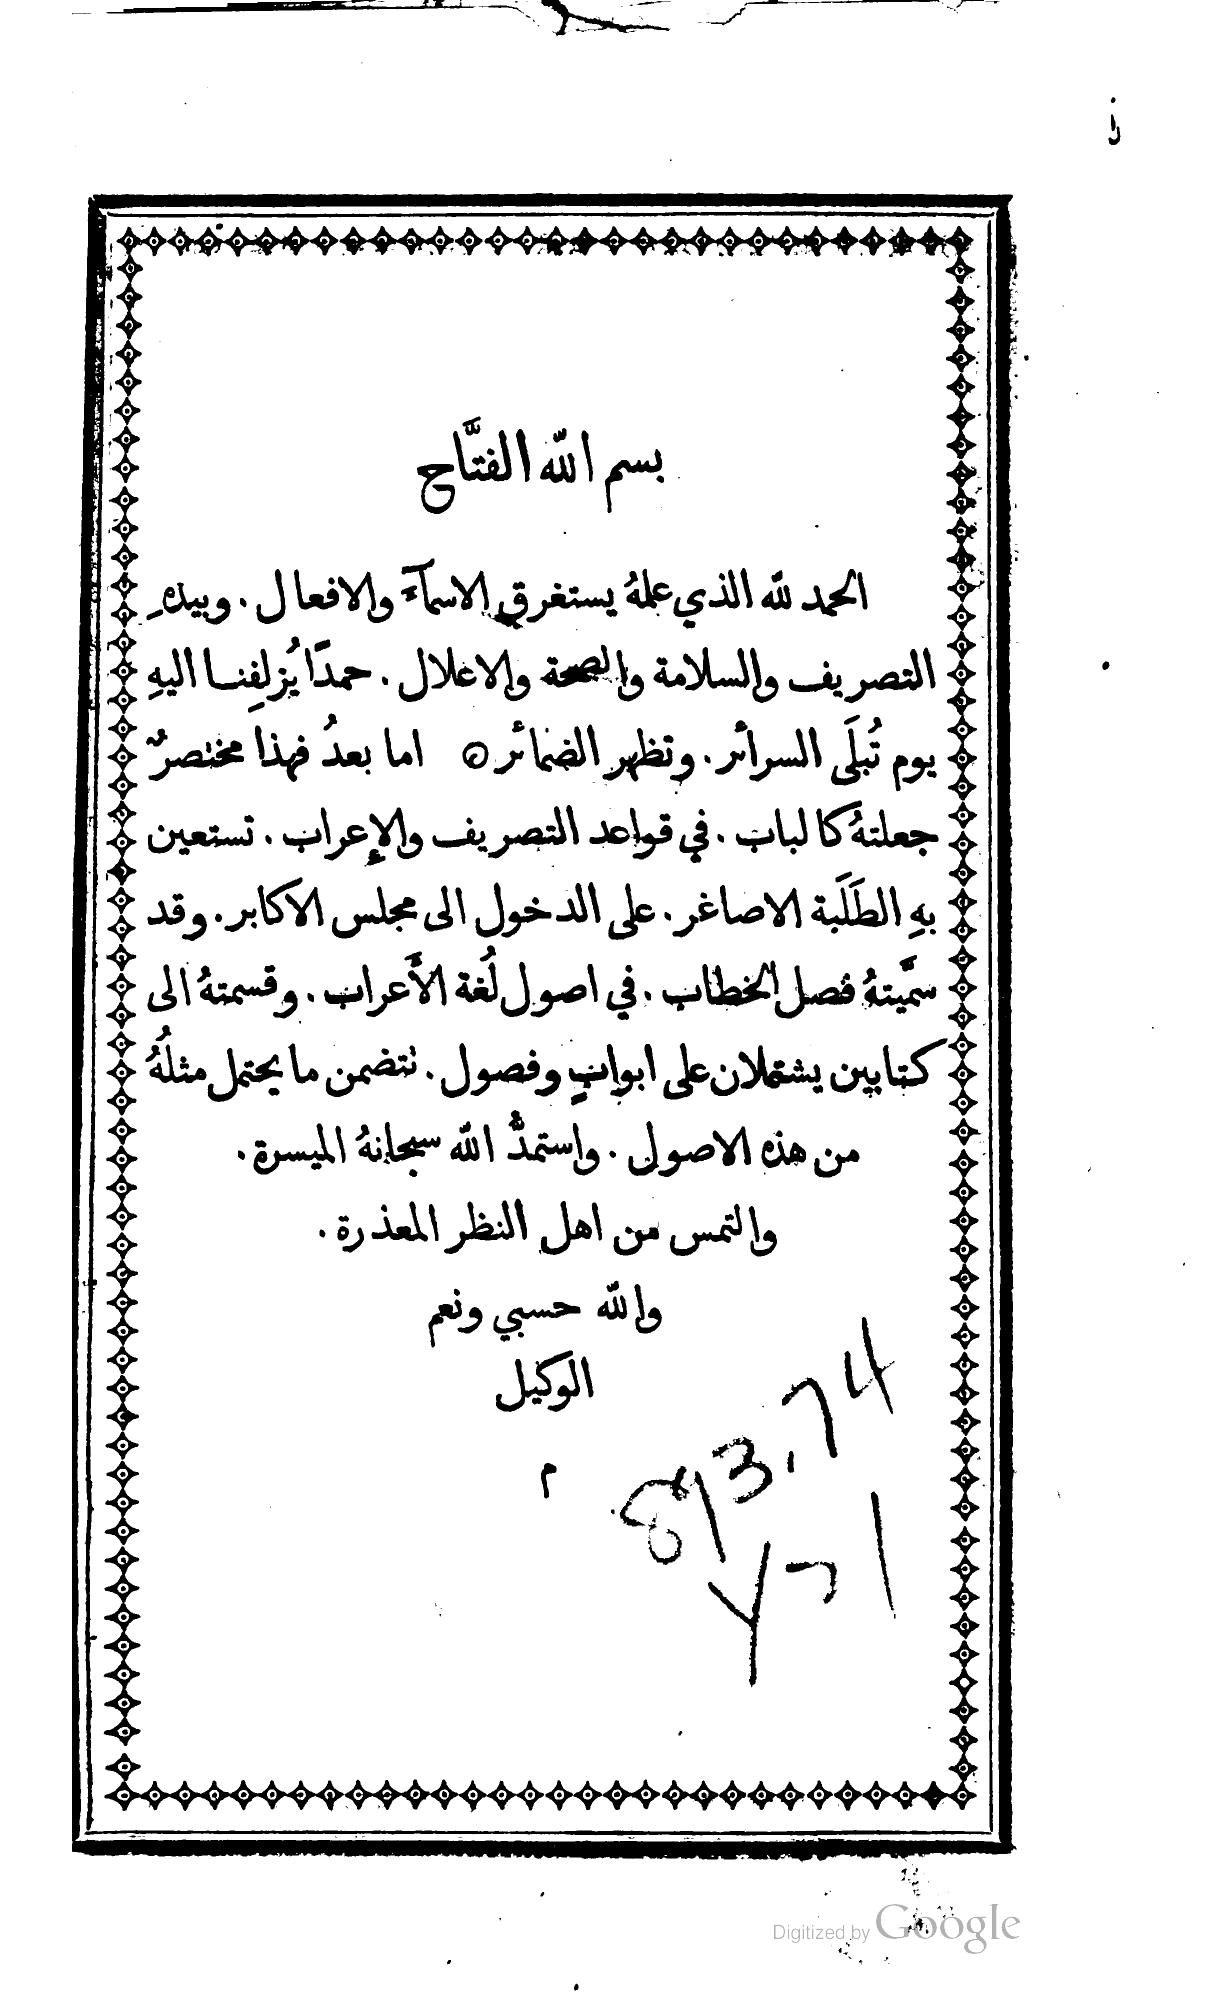 بسم الله الفتَّاح
الحمد لله الذي علمهُ يستغرق الاسمآءَ والافعال . وبيدهِ
التصريف والسلامة والصحة والاعلال . حمدًا يُزلفِنا اليهِ
يوم تُبلَى السرائر . وتظهر الضمائر ۞ اما بعدُ فهذا مختصرٌ
جعلتهُ كالباب . في قواعد التصريف والإعراب . تستعين
بهِ الطَلَبة الاصاغر . على الدخول الى مجلس الاكابر . وقد
سمَّيتهُ فصل الخطاب . في اصول لُغة الأَعراب . وقسمتهُ الى
كتابين يشتملان على ابوابٍ وفصول . تتضمن ما يحتمل مثلُهُ
من هذه الاصول . واستمدُّ الله سبحانهُ الميسرة .
والتمس من اهل النظر المعذرة .
والله حسبي ونعم
الوكيل
م
893.74
Y 1
Digitized by Google